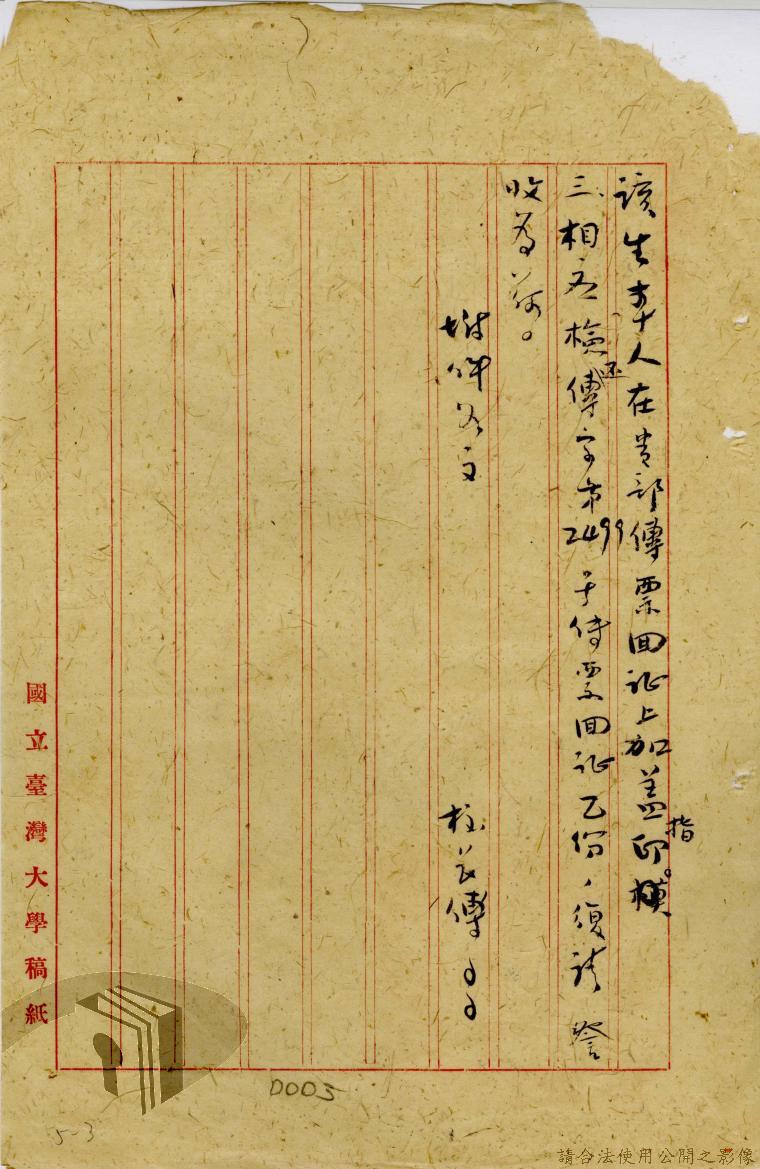 該生等十人在貴部傳票回証上加蓋指印。
三、相應檢還傳字第2499号傳票回証乙份,復請 詧
收為荷。
附件如文
校長傅〇〇
國立臺灣大學稿紙
0003
5-3
請合法使用公開之影像